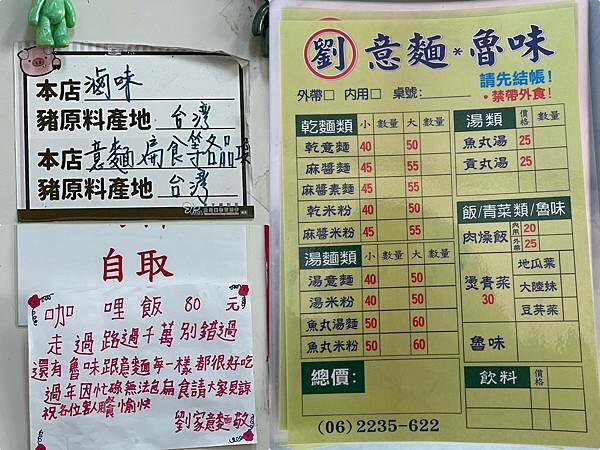 本店 滷味
豬原料產地 台灣
本店 意麵 扁食等各品項
豬原料產地 台灣
自取
咖哩飯 80 元
走過路過千萬別錯過
還有魯味跟意麵每一樣都很好吃
過年因忙碌無法包扁食請大家見諒
祝各位客人用餐愉快
劉家意麵 敬
劉 意麵*魯味
請先結帳!
外帶□ 內用□ 桌號:
・禁帶外食!
乾麵類 小 數量 大 數量
乾意麵 40 50
麻醬麵 45 55
麻醬素麵 45 55
乾米粉 40 50
麻醬米粉 45 55
湯麵類 小 數量 大 數量
湯意麵 40 50
湯米粉 40 50
魚丸湯麵 50 60
魚丸米粉 50 60
總價:
湯類 價格 數量
魚丸湯 25
貢丸湯 25
飯/青菜類/魯味
肉燥飯 內用 20
外帶 25
燙青菜 30
地瓜葉
大陸妹
豆芽菜
魯味
飲料 價格
(06) 2235-622